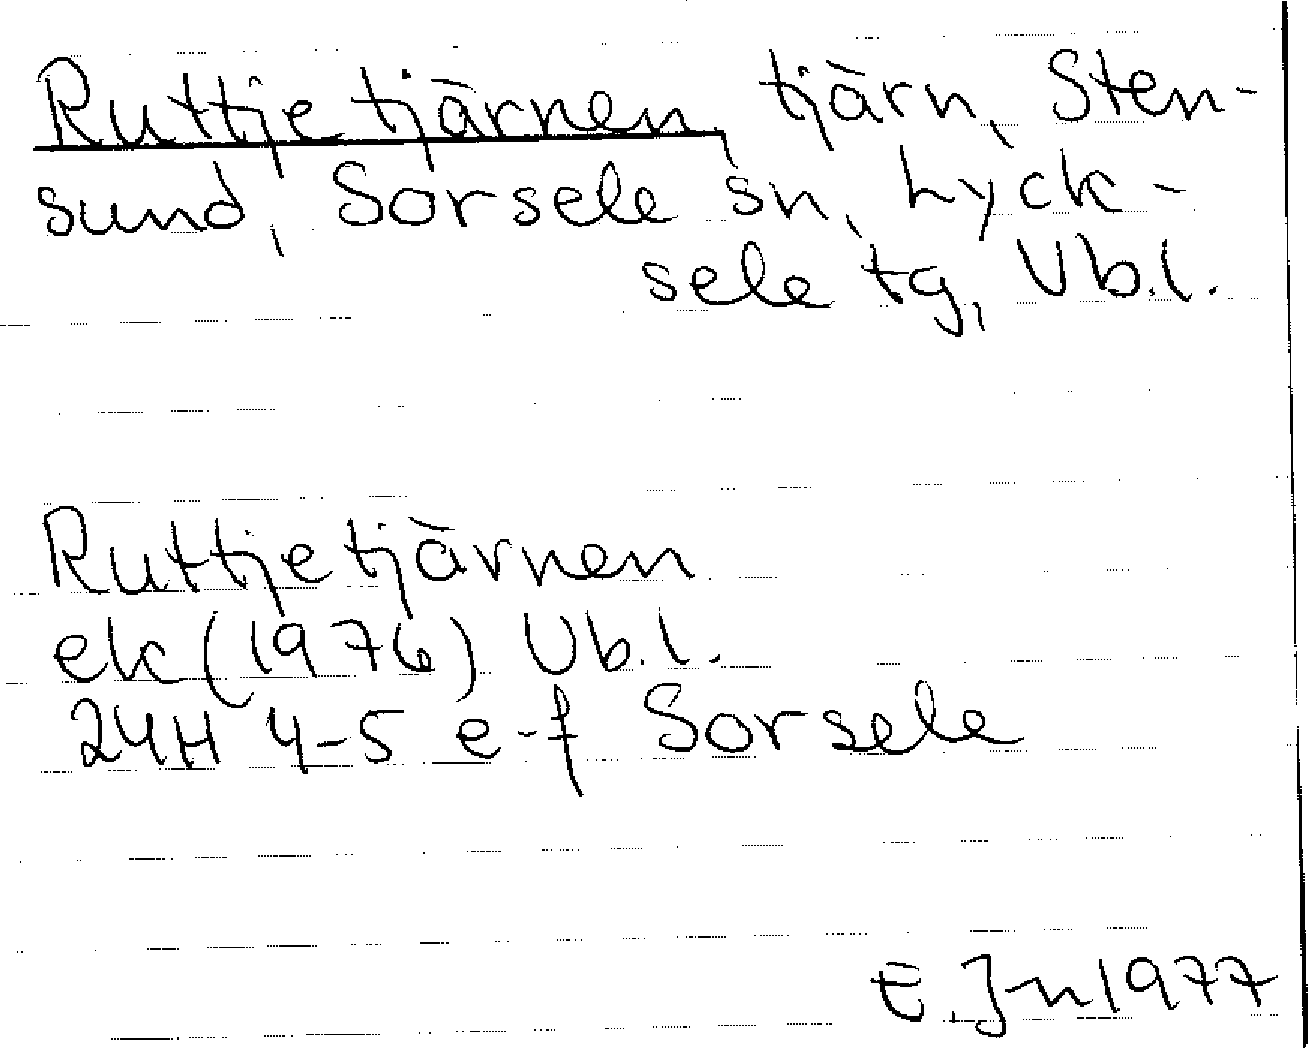 Ruttjetjärnen, tjärn, Sten-
sund, Sorsele sn, Lyck-
sele tg, Vb.l.
Ruttjetjärnen
ek (1976) Vb.l.
24H 4-5 e-f Sorsele
E.Jn 1977